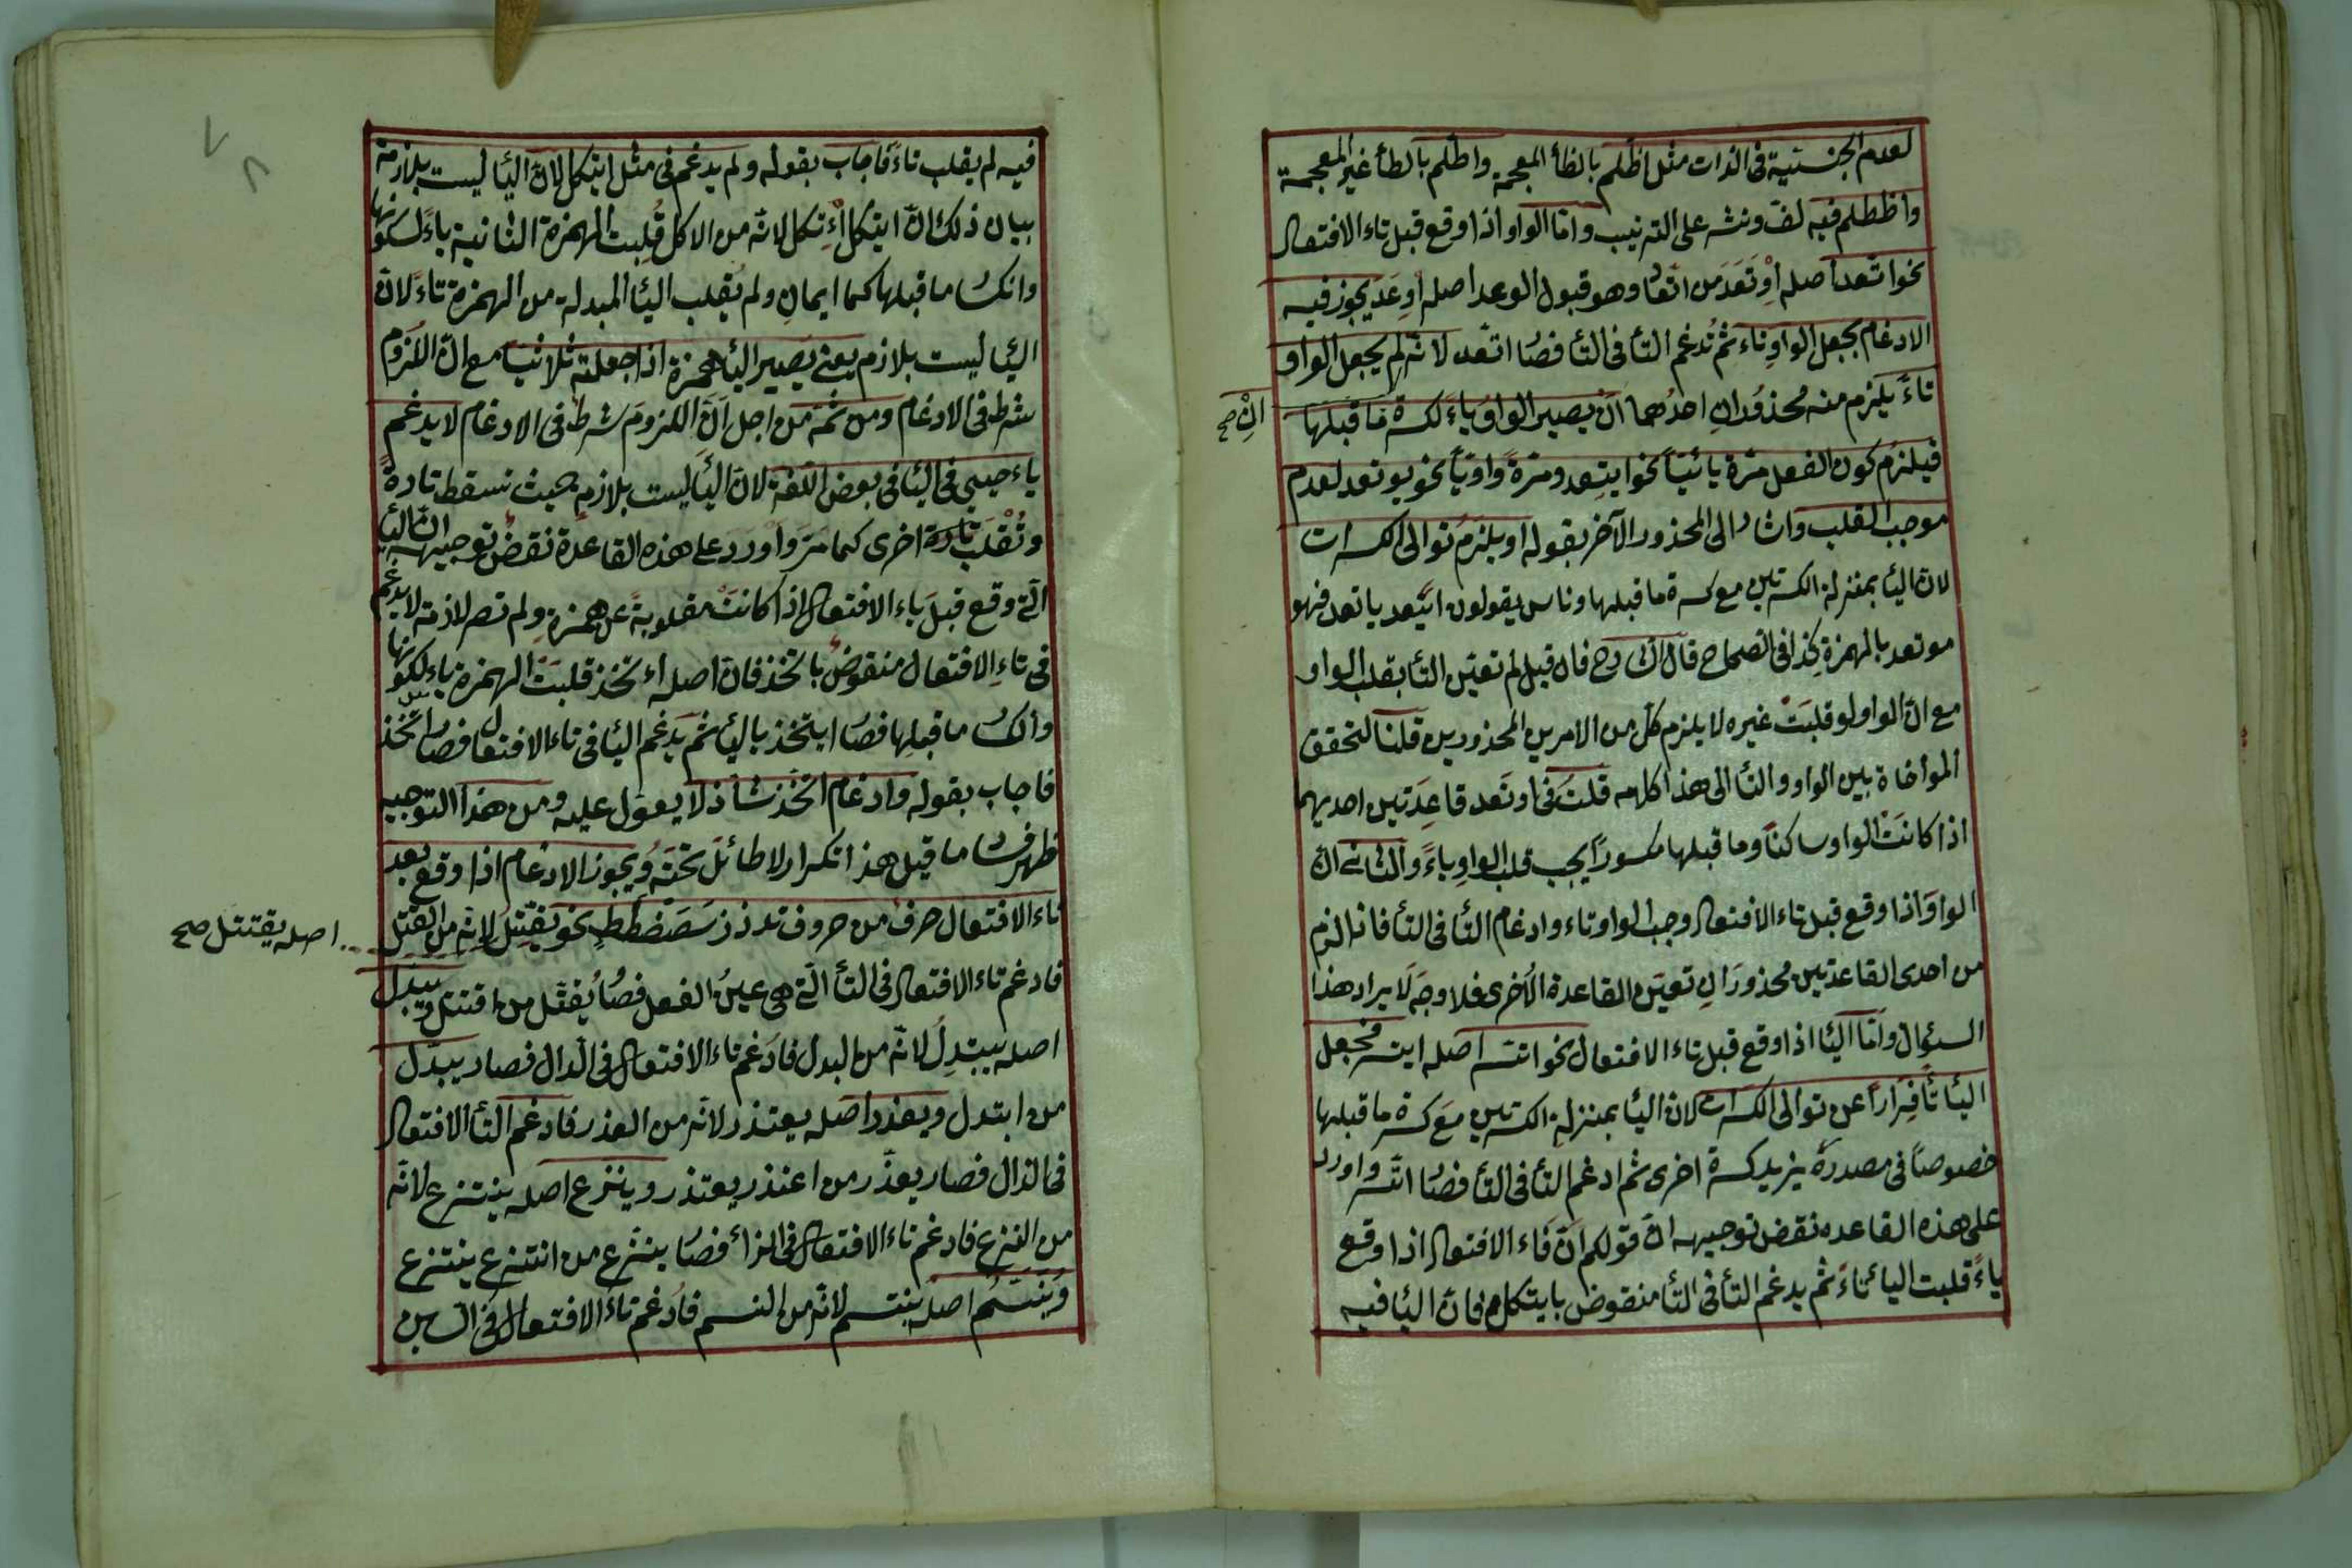 لعدم الجنسية فى الذات مثل اظلم بالظأ المعجمة واطلم بالطأ غير المعجمة
واظطلم فيه لف ونشر على الترتيب واما الواو اذا وقع قبل تاء الافتعال
نحو اتعد اصله اوتعد من اتعاد وهو قبول الوعد اصله اوعد يجوز فيه
الادغام بجعل الواو تاء ثم تدغم التأ فى التأ فصار اتعد لانه لم يجعل الواو
تاء يلزم منه محذوران احدهما ان يصير الواو ياء لكسرة ما قبلها
ان صح
فيلزم كون الفعل مرة يائيا نحو ايتعد ومرة واويا نحو يوتعد لعدم
موجب القلب واشار الى المحذور الآخر بقوله او يلزم توالى الكسرات
لان اليأ بمنزلة الكسرتين مع كسرة ما قبلها وناس يقولون ايتعد ياتعد فهو
موتعد بالهمزة كذا فى الصحاح قال الشارح فان قيل لم تعين التأ بقلب الواو
مع ان الواو لو قلبت غيره لا يلزم كل من الامرين المحذورين قلنا لتحقق
المواخاة بين الواو والتأ الى هذا كلامه قلت فى اوتعد قاعدتين احديهما
اذا كانت الواو ساكنا وما قبلها مكسورا يجب قلب الواو ياء والثانى ان
الواو اذا وقع قبل تاء الافتعال وجب الواو تاء وادغام التأ فى التأ فاذا لزم
من احدى القاعدتين محذوران تعين القاعدة الاخرى فلا وجه لايراد هذا
السؤال واما اليأ اذا وقع قبل تاء الافتعال نحو اتسر اصله ايتسر فجعل
اليأ تأ فرارا عن توالى الكسرات لان اليأ بمنزلة الكسرتين مع كسرة ما قبلها
خصوصا فى مصدره يزيد كسرة اخرى ثم ادغم التأ فى التأ فصار اتسر واورد
على هذه القاعده نقض توجيهه ان قولكم ان فاء الافتعال اذا وقع
ياء قلبت اليأ تاء ثم يدغم التأ فى التأ منقوض بايتكل فان اليأ فيه
فيه لم يقلب تاء فاجاب بقوله ولم يدغم فى مثل ايتكل لان اليأ ليست بلازمة
بيان ذلك ان ايتكل اءتكل لانه من الاكل قلبت الهمزة الثانية ياء لسكونها
وانكسار ما قبلها كما ايمان ولم يقلب اليأ المبدلة من الهمزة تاء لان
اليأ ليست بلازم يعنى يصير اليأ همزة اذا جعلته ثلاثيا مع ان اللزوم
شرط فى الادغام ومن ثمة من اجل ان اللزوم شرط فى الادغام لا يدغم
ياء حيى فى اليأ فى بعض اللغة لان اليأ ليست بلازم بحيث تسقط تارة
وتقلب تارة اخرى كما مر واورد على هذه القاعدة نقض توجيهه ان اليأ
التى وقع قبل ياء الافتعال اذا كانت مقلوبة عن همزة ولم تصر لازمة لا يدغم
فى تاء الافتعال منقوض باتخذ فان اصله اءتخذ قلبت الهمزة ياء لكونها
وانكسار ما قبلها فصار ايتخذ باليأ ثم يدغم اليأ فى تاء الافتعال فصار اتخذ
فاجاب بقوله وادغام اتخذ شاذ لا يعول عليه ومن هذا التوجيه
ظهر فساد ما قيل هذا تكرار لا طائل تحته ويجوز الادغام اذا وقع بعد
تاء الافتعال حرف من حروف تدذزسصضطظ نحو يقتل لانه من القتل
اصله يقتتل صح
فادغم تاء الافتعال فى التأ التى هى عين الفعل فصار يقتل من اقتتل ويبدل
اصله يبتدل لانه من البدل فادغم تاء الافتعال فى الدال فصار يبدل
من ابتدل ويعذر اصله يعتذر لانه من العذر فادغم التأ الافتعال
فى الذال فصار يعذر من اعتذر يعتذر وينزع اصله ينتزع لانه
من النزع فادغم تاء الافتعال فى الزأ فصار ينزع من انتزع ينتزع
وينسم اصله ينتسم لانه من النسم فادغم تاء الافتعال فى السين